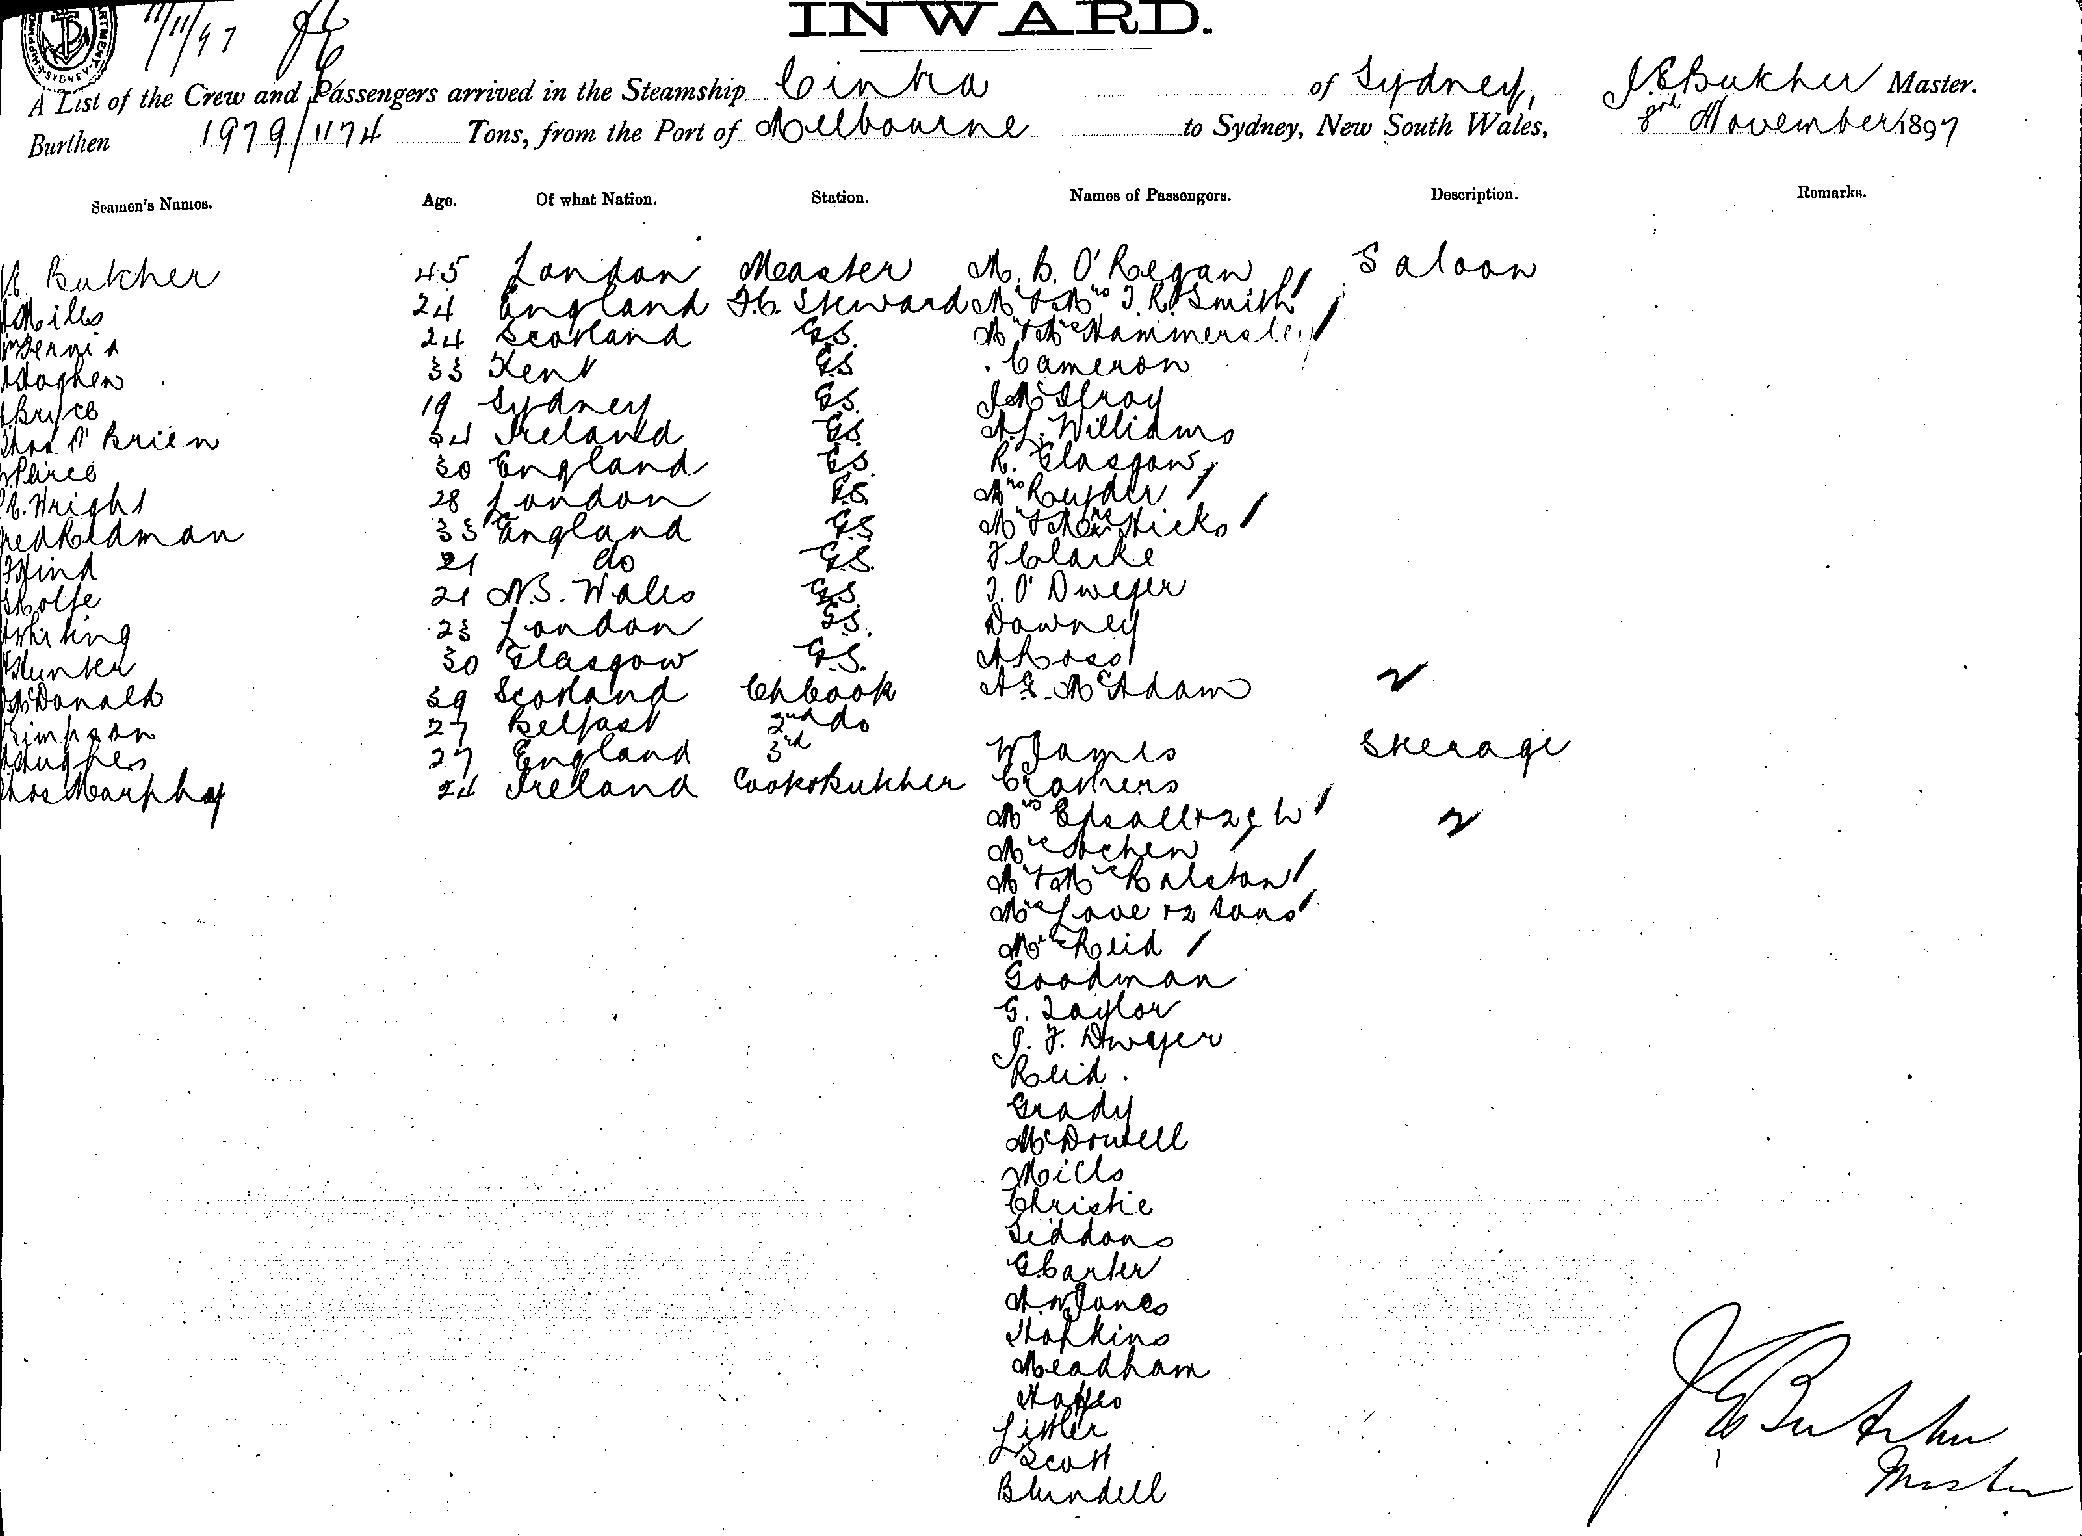 11/11/97
INWARD.
A List of the Crew and Passengers arrived in the Steamship Cintra of Sydney, J. E. Butcher Master.
Burthen 1979/1174 Tons, from the Port of Melbourne to Sydney, New South Wales, November 1897
Seamen's Names. Age. Of what Nation. Station. Names of Passengers. Description. Remarks.
Butcher 45 London Master M. B. O'Regan Saloon
Mills 24 England F.C. Steward Mr & Mrs T. R. Smith
24 Scotland G.S. Hammersley
33 Kent G.S. Cameron
Bryce 19 Sydney G.S. J McIlroy
O'Brien 34 Ireland G.S. A. L. Williams
Pierce 30 England G.S. R. Glasgow
Wright 28 London G.S. Mrs Ruyder
Redman 33 England G.S. Hicks
Hind 21 do G.S. F Clarke
Rolfe 21 N.S. Wales G.S. T. O'Dwyer
23 London G.S. Downey
Hunter 30 Glasgow G.S. A Ross
McDonald 39 Scotland Ch Cook McAdam
Simpson 27 Belfast 2nd do
Hughes 27 England 3rd W James Steerage
Thos Murphy 24 Ireland Cook & Butcher Crothers
Mrs
Ralston
Love & 2 sons
Reid
Goodman
G. Taylor
J. F. Dwyer
Reid.
Grady
McDowell
Mills
Christie
Siddons
G Carter
A. W Jones
Hopkins
Meadham
Littler
Scott
Blundell
J E Butcher
Master